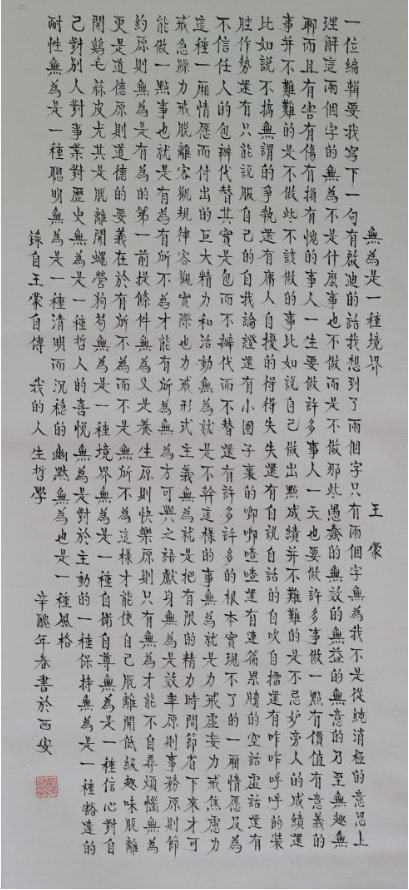 無為是一種境界 王蒙
一位編輯要我寫下一句有啟迪的話我想到了兩個字只有兩個字無為我不是從純消極的意思上
理解這兩個字的無為不是什麼事也不做而是不做那些愚蠢的無效的無益的無意的乃至無趣無
聊而且有害有傷有損有愧的事人一生要做許多事人一天也要做許多事做一點有價值有意義的
事并不難難的是不做些不該做的事比如說自己做出點成績并不難難的是不忌妒旁人的成績還
比如說不搞無謂的爭執還有庸人自擾的得得失失還有自說自話的自吹自擂還有咋咋呼呼的裝
腔作勢還有只能說服自己的自我論證還有小圈子裏的唧唧喳喳還有連篇累牘的空話虛話還有
不信任人的包辦代替其實是包而不辦代而不替還有許多許多的根本實現不了的一厢情愿及為
這種一厢情愿而付出的巨大精力和活動無為就是不幹這樣的事無為就是力戒虛妄力戒焦慮力
戒急躁力戒脫離客觀規律客觀實際也力戒形式主義無為就是把有限的精力時間節省下來才可
能做一點事也就是有為有所不為才能有所為無為方可與之語獻身無為是效率原則事務原則節
約原則無為是有為的第一前提條件無為又是養生原則快樂原則只有無為才能不自尋煩惱無為
更是道德原則道德的要義在於有所不為而不是無所不為這樣才能使自己脫離開低級趣味脫離
開鷄毛蒜皮尤其是脫離開蠅營狗苟無為是一種境界無為是一種自衛自尊無為是一種信心對自
己對別人對事業對歷史無為是一種哲人的喜悅無為是對於主動的一種保持無為是一種豁達的
耐性無為是一種聰明無為是一種清明而沉穩的幽默無為也是一種風格
錄自王蒙自傳 我的人生哲學 辛醜年春書於西安